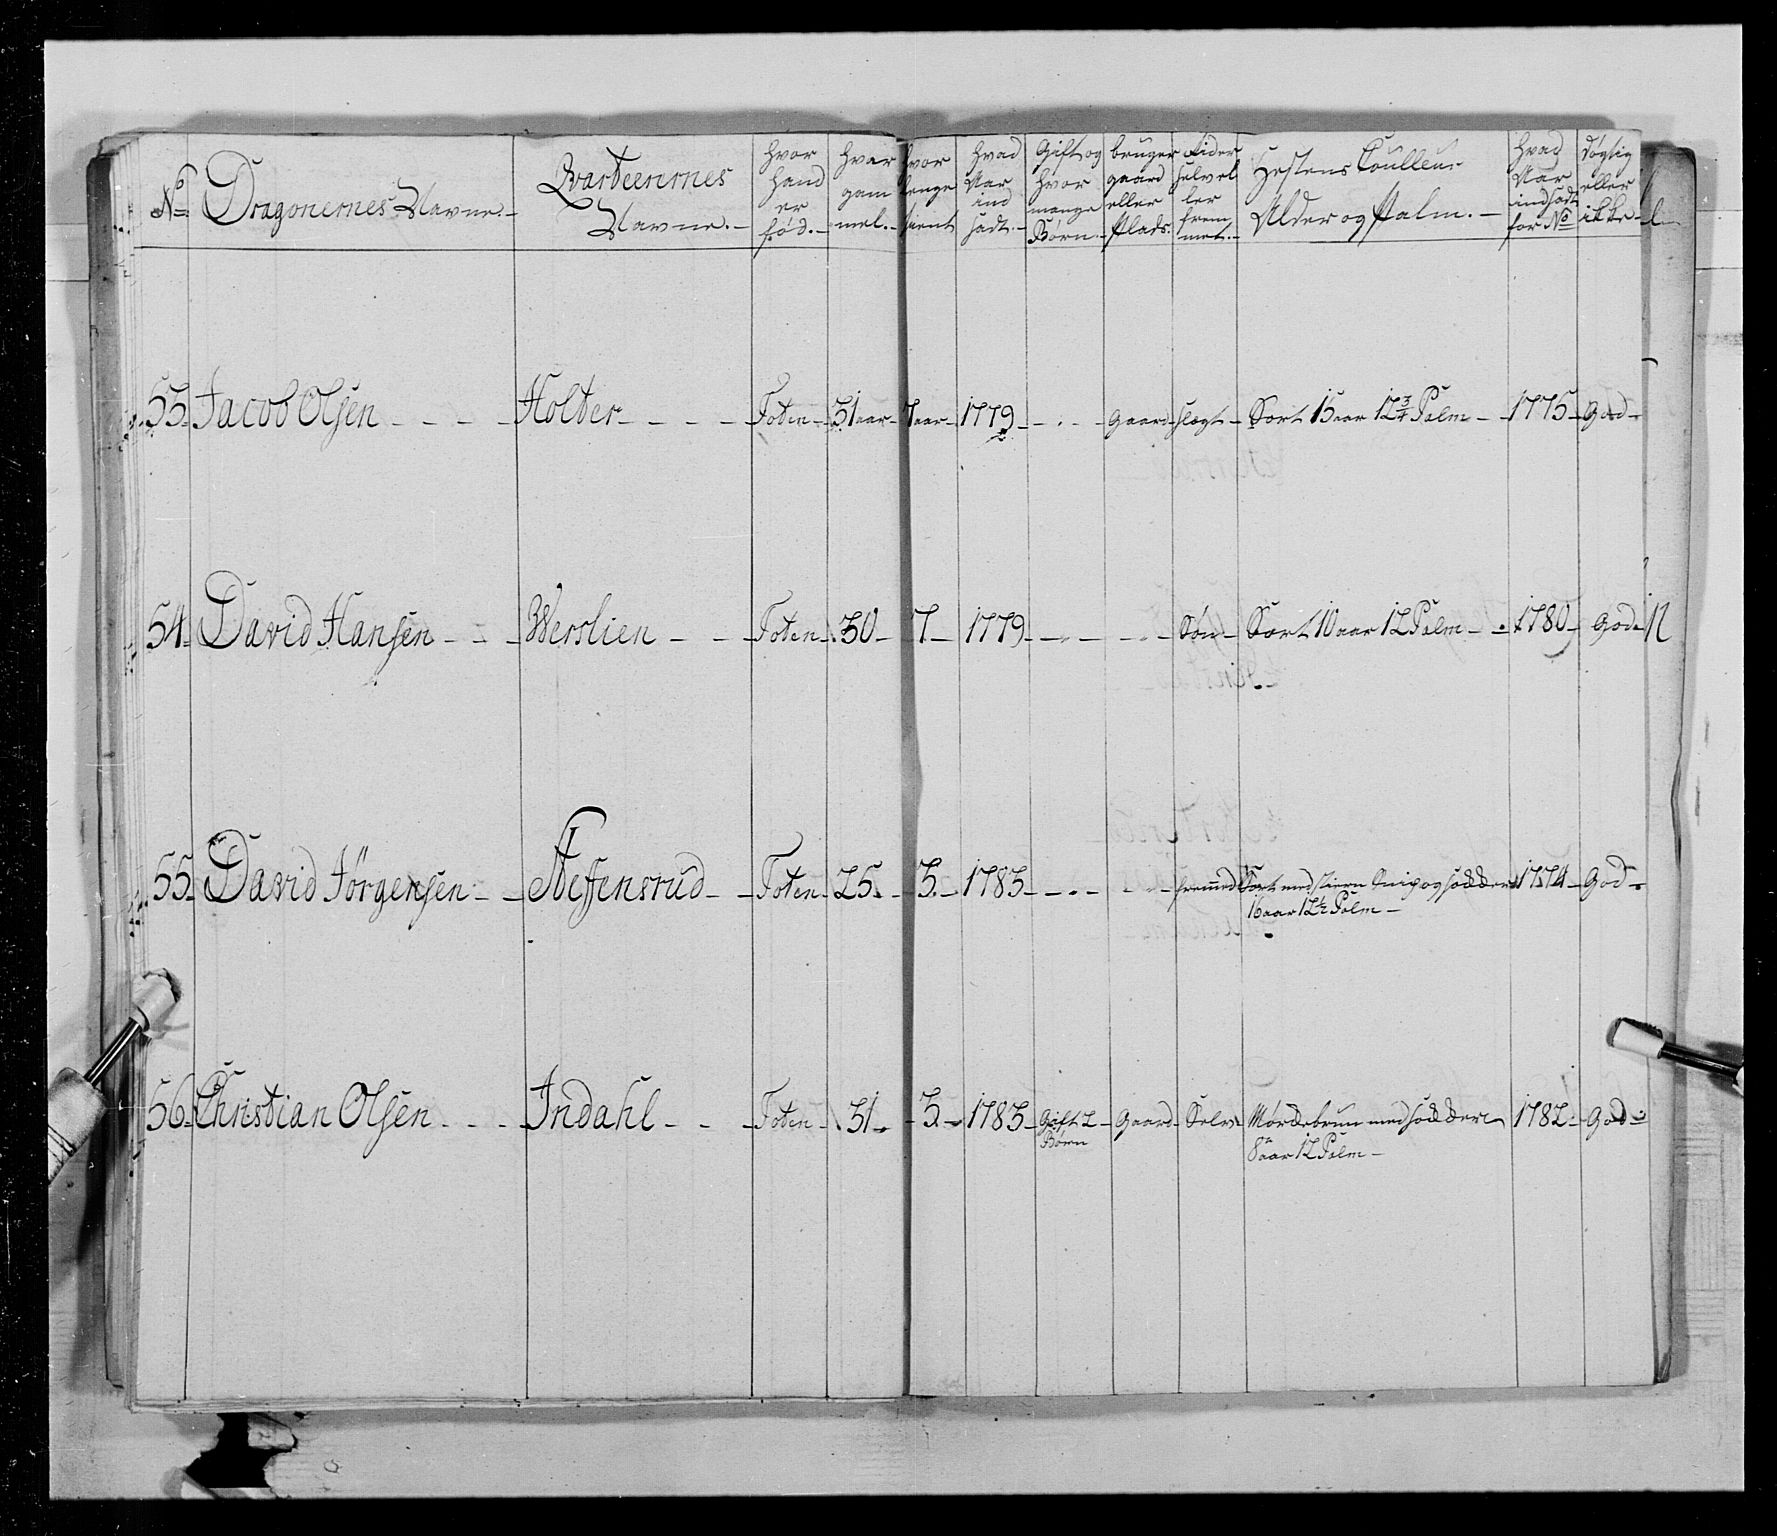 No Dragonernes Navne.- Qvarteernes Navne.- hvor hand er fød.- hvor gam mel.- hvor lenge tient hvad Aar ind sadt.- Gift og hvor mange Børn.- bruger gaard eller Plads. Rider selv el ler frem met.- Hestens Coulleur Alder og Palm.- hvad Aar indsadt for No døgtig eller ikke.-
53. Jacob Olsen - - - - Holter - - - - Toten - 31 aar - 7 aar - 1779 - - . - Gaard - slegt - Sort 15 aar 12 3/4 Palm - - 1775 - God -
54. David Hansen - - - Werslien - - - Toten - 30 - 7 - 1779 - - . - - . - Søn - Sort 10 aar 12 Palm - - 1780 - God -
55. David Jörgensen - - Steffensrud - - Toten - 25. - 3. - 1783 - - . - - . - fremmed Sort med stiern Snip og sokker 1774 - God -
16 aar 12 1/2 Palm -
56. Christian Olsen - - - Indahl - - - Toten - 31. - 3. - 1783 - Gift 2 - Gaard - Selv - Mørkebrun med sokker 1782 - God -
Børn 8te aar 12 Palm -